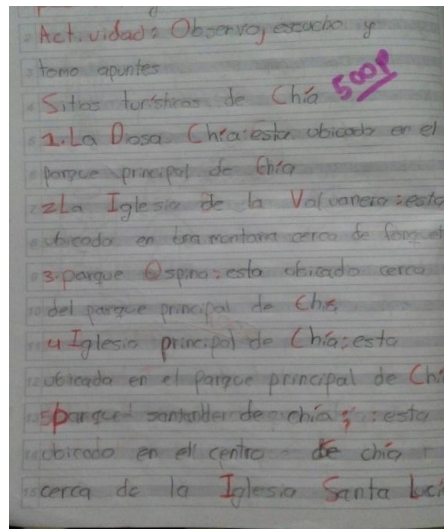 Actividad: Observo, escucho y
tomo apuntes
Sitios turísticos de Chía
500p
1. La Diosa Chía: esta ubicado en el
parque principal de Chía
2 La Iglesia de la Valvanera: esta
ubicada en una montaña cerca de
3. parque Ospina: esta ubicado cerca
del parque principal de Chía
4 Iglesia principal de Chía: esta
ubicada en el parque principal de Chí
5 parque santander de chía: esta
ubicado en el centro de chía
cerca de la Iglesia Santa Luci